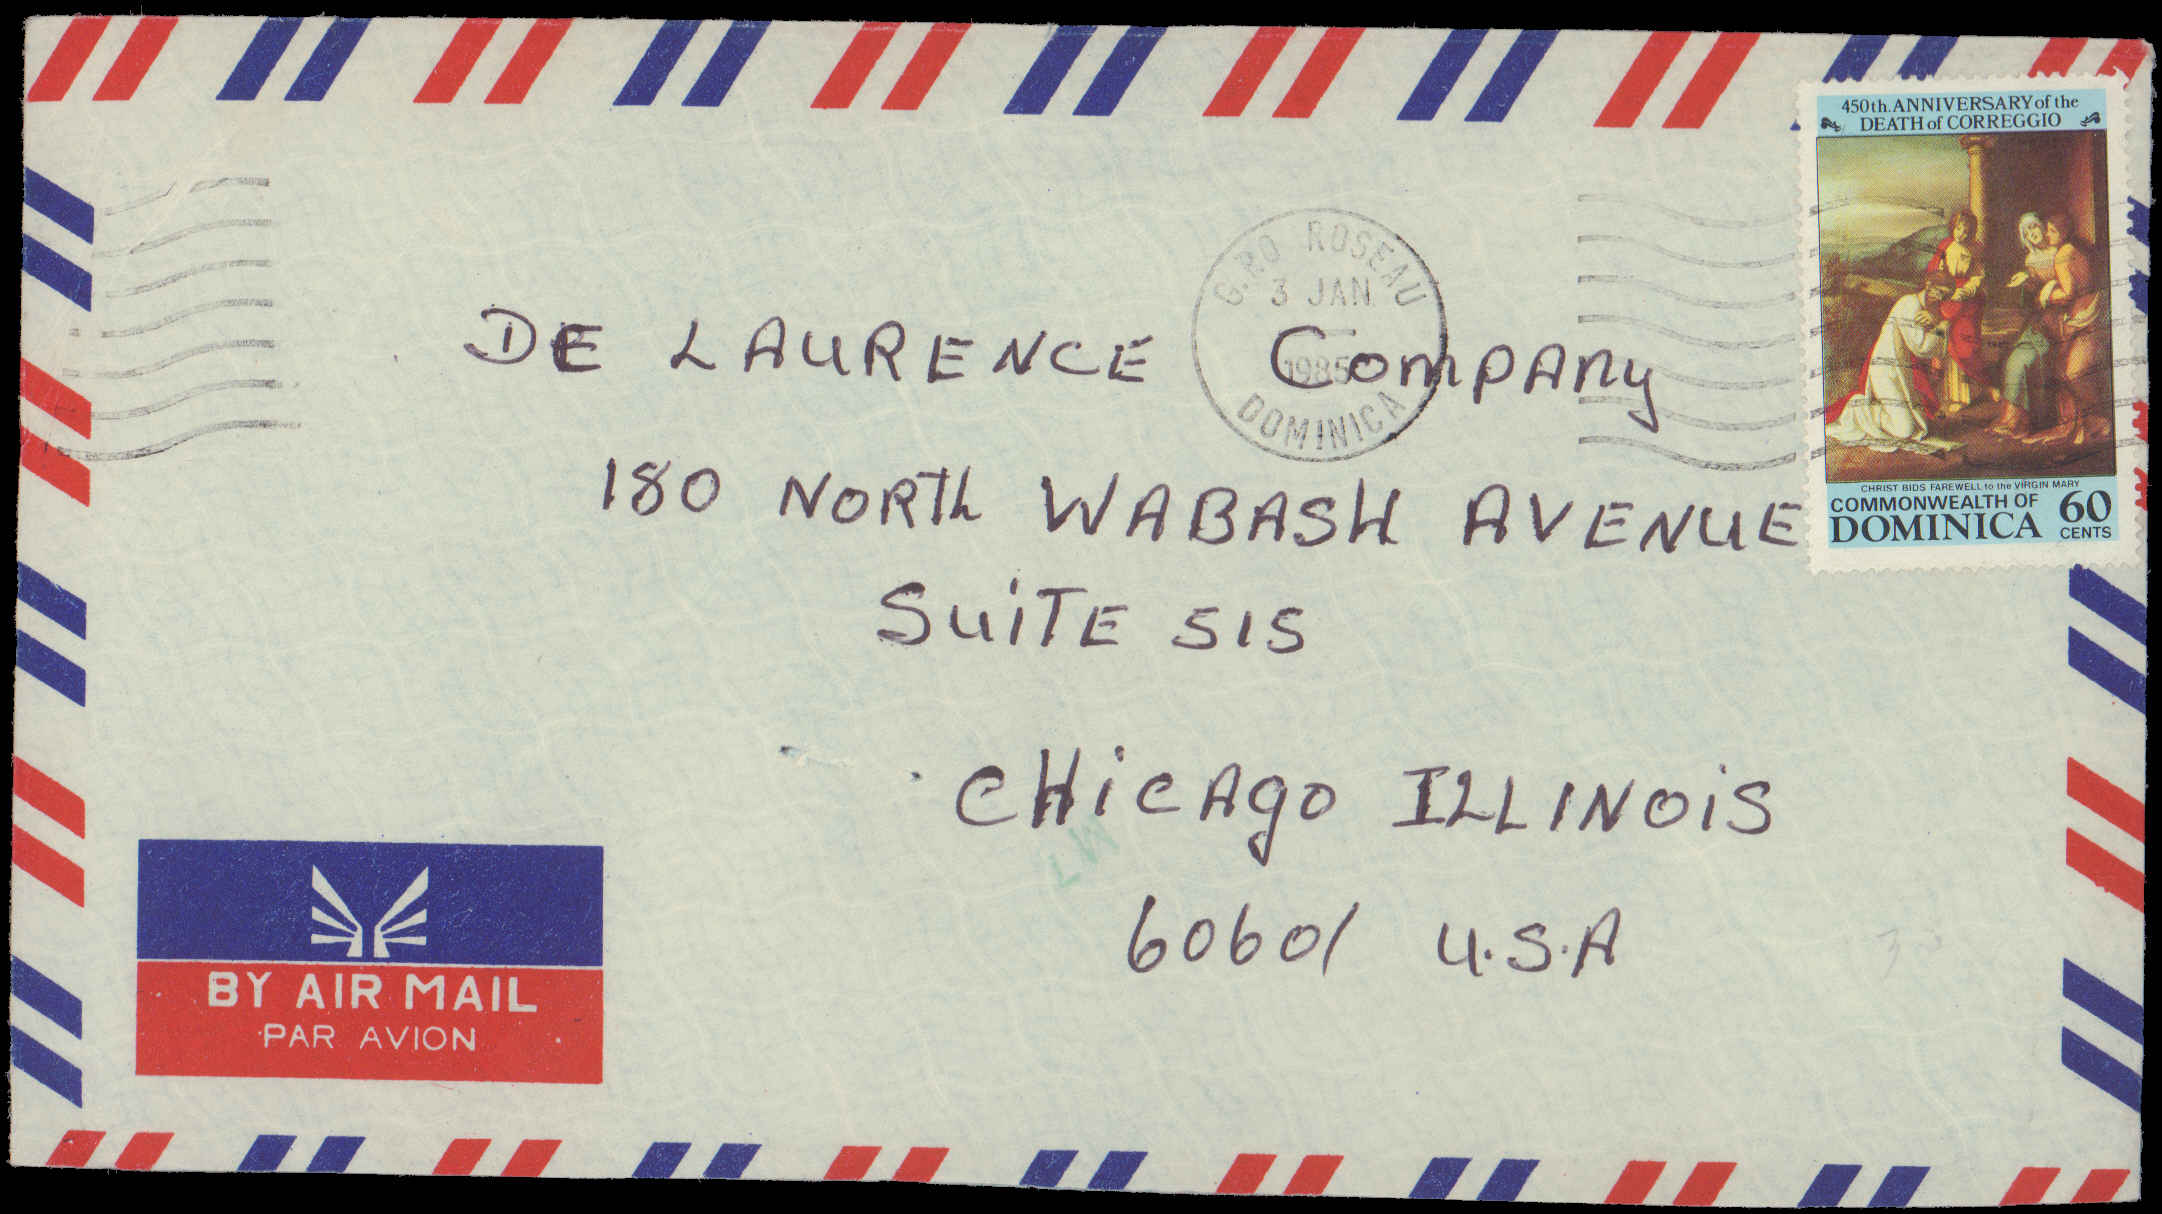 450th. ANNIVERSARY of the
DEATH of CORREGGIO
CHRIST BIDS FAREWELL to the VIRGIN MARY
COMMONWEALTH OF
DOMINICA
60
CENTS
G.P.O ROSEAU
3 JAN
1985
DOMINICA
DE LAURENCE Company
180 NORTh WABASH AVENUE
SUiTE 515
CHiCAgo ILLINOiS
60601 U.S.A
BY AIR MAIL
PAR AVION